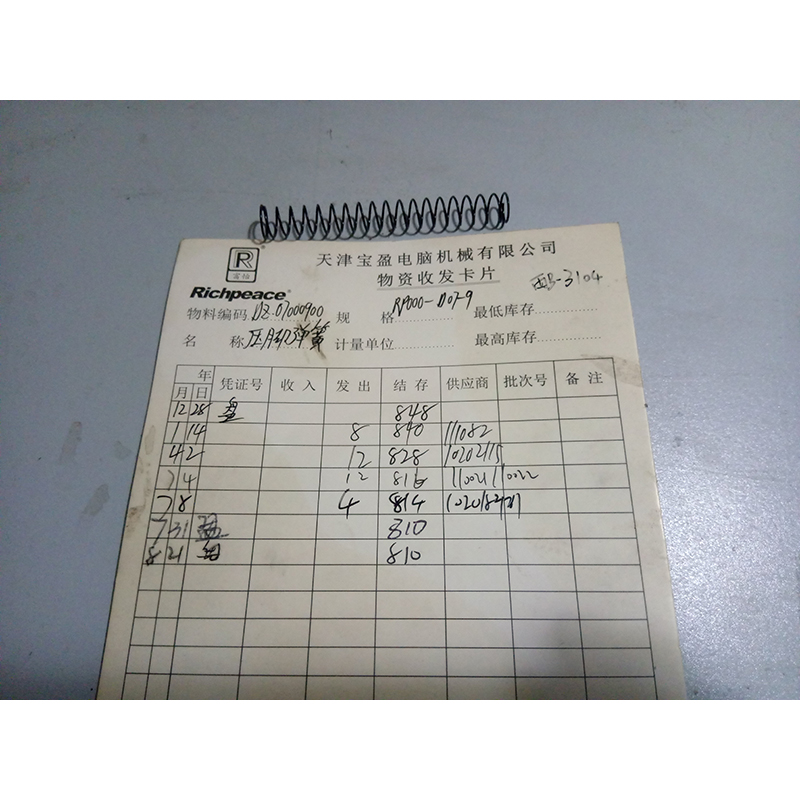 R
富怡
Richpeace
天津宝盈电脑机械有限公司
物资收发卡片
-3104
物料编码 DZ.07000900 规 格 RP000-D07-9 最低库存
名 称 压脚弹簧 计量单位 最高库存
年 凭证号 收入 发出 结存 供应商 批次号 备注
月 日
12 28 盘 848
1 14 8 840 111082
4 2 12 828 10202115
7 4 12 816 110021 110022
7 8 4 814
7 31 810
8 21 810